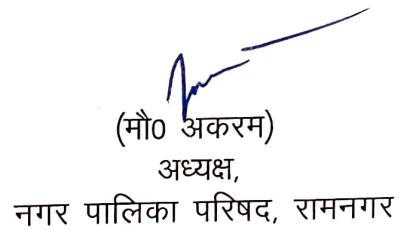 (मौ0 अकरम)
अध्यक्ष,
नगर पालिका परिषद, रामनगर